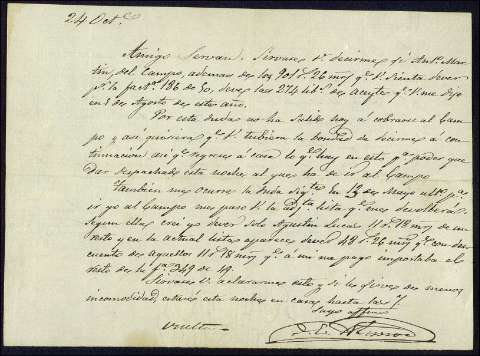 24 Oct.e
Amigo Servan: Sirvase V. decirme si Ant.o Mar-
tin, del Campo, ademas de los 201 r. 26 mrs q.e V. sienta dever
p.r la fact.a 186 de 50, deve las 274 lib.s de aceyte q.e V. me dijo
en 1 de Agosto de este año.
Por esta duda no ha salido hoy á cobrarse al Cam-
po y asi quisiera q.e V. tubiera la bondad de decirme á con-
tinuacion asi q.e regrese á casa lo q.e hay en esto p.a poder que-
dar despachado esta noche al que ha de ir al Campo
Tambien me ocurre la duda sig.te en 12 de Mayo ult.o p.a
ir yo al Campo me paso V. la adj.ta lista q.e me devolverá.
Segun ella crei yo dever solo Agustin Lucas 11 r. 18 mrs de un
resto y en la actual lista aparece dever 42 r. 26 mrs q.e con des-
cuento de aquellos 11 r. 18 mrs q.e á un me pago importaba el
resto de la f.a 349 de 49.
Sirvase V. aclararme esto y si le sirve de menos
incomodidad, estaré esta noche en casa hasta las 7
Suyo affmo
vuelta